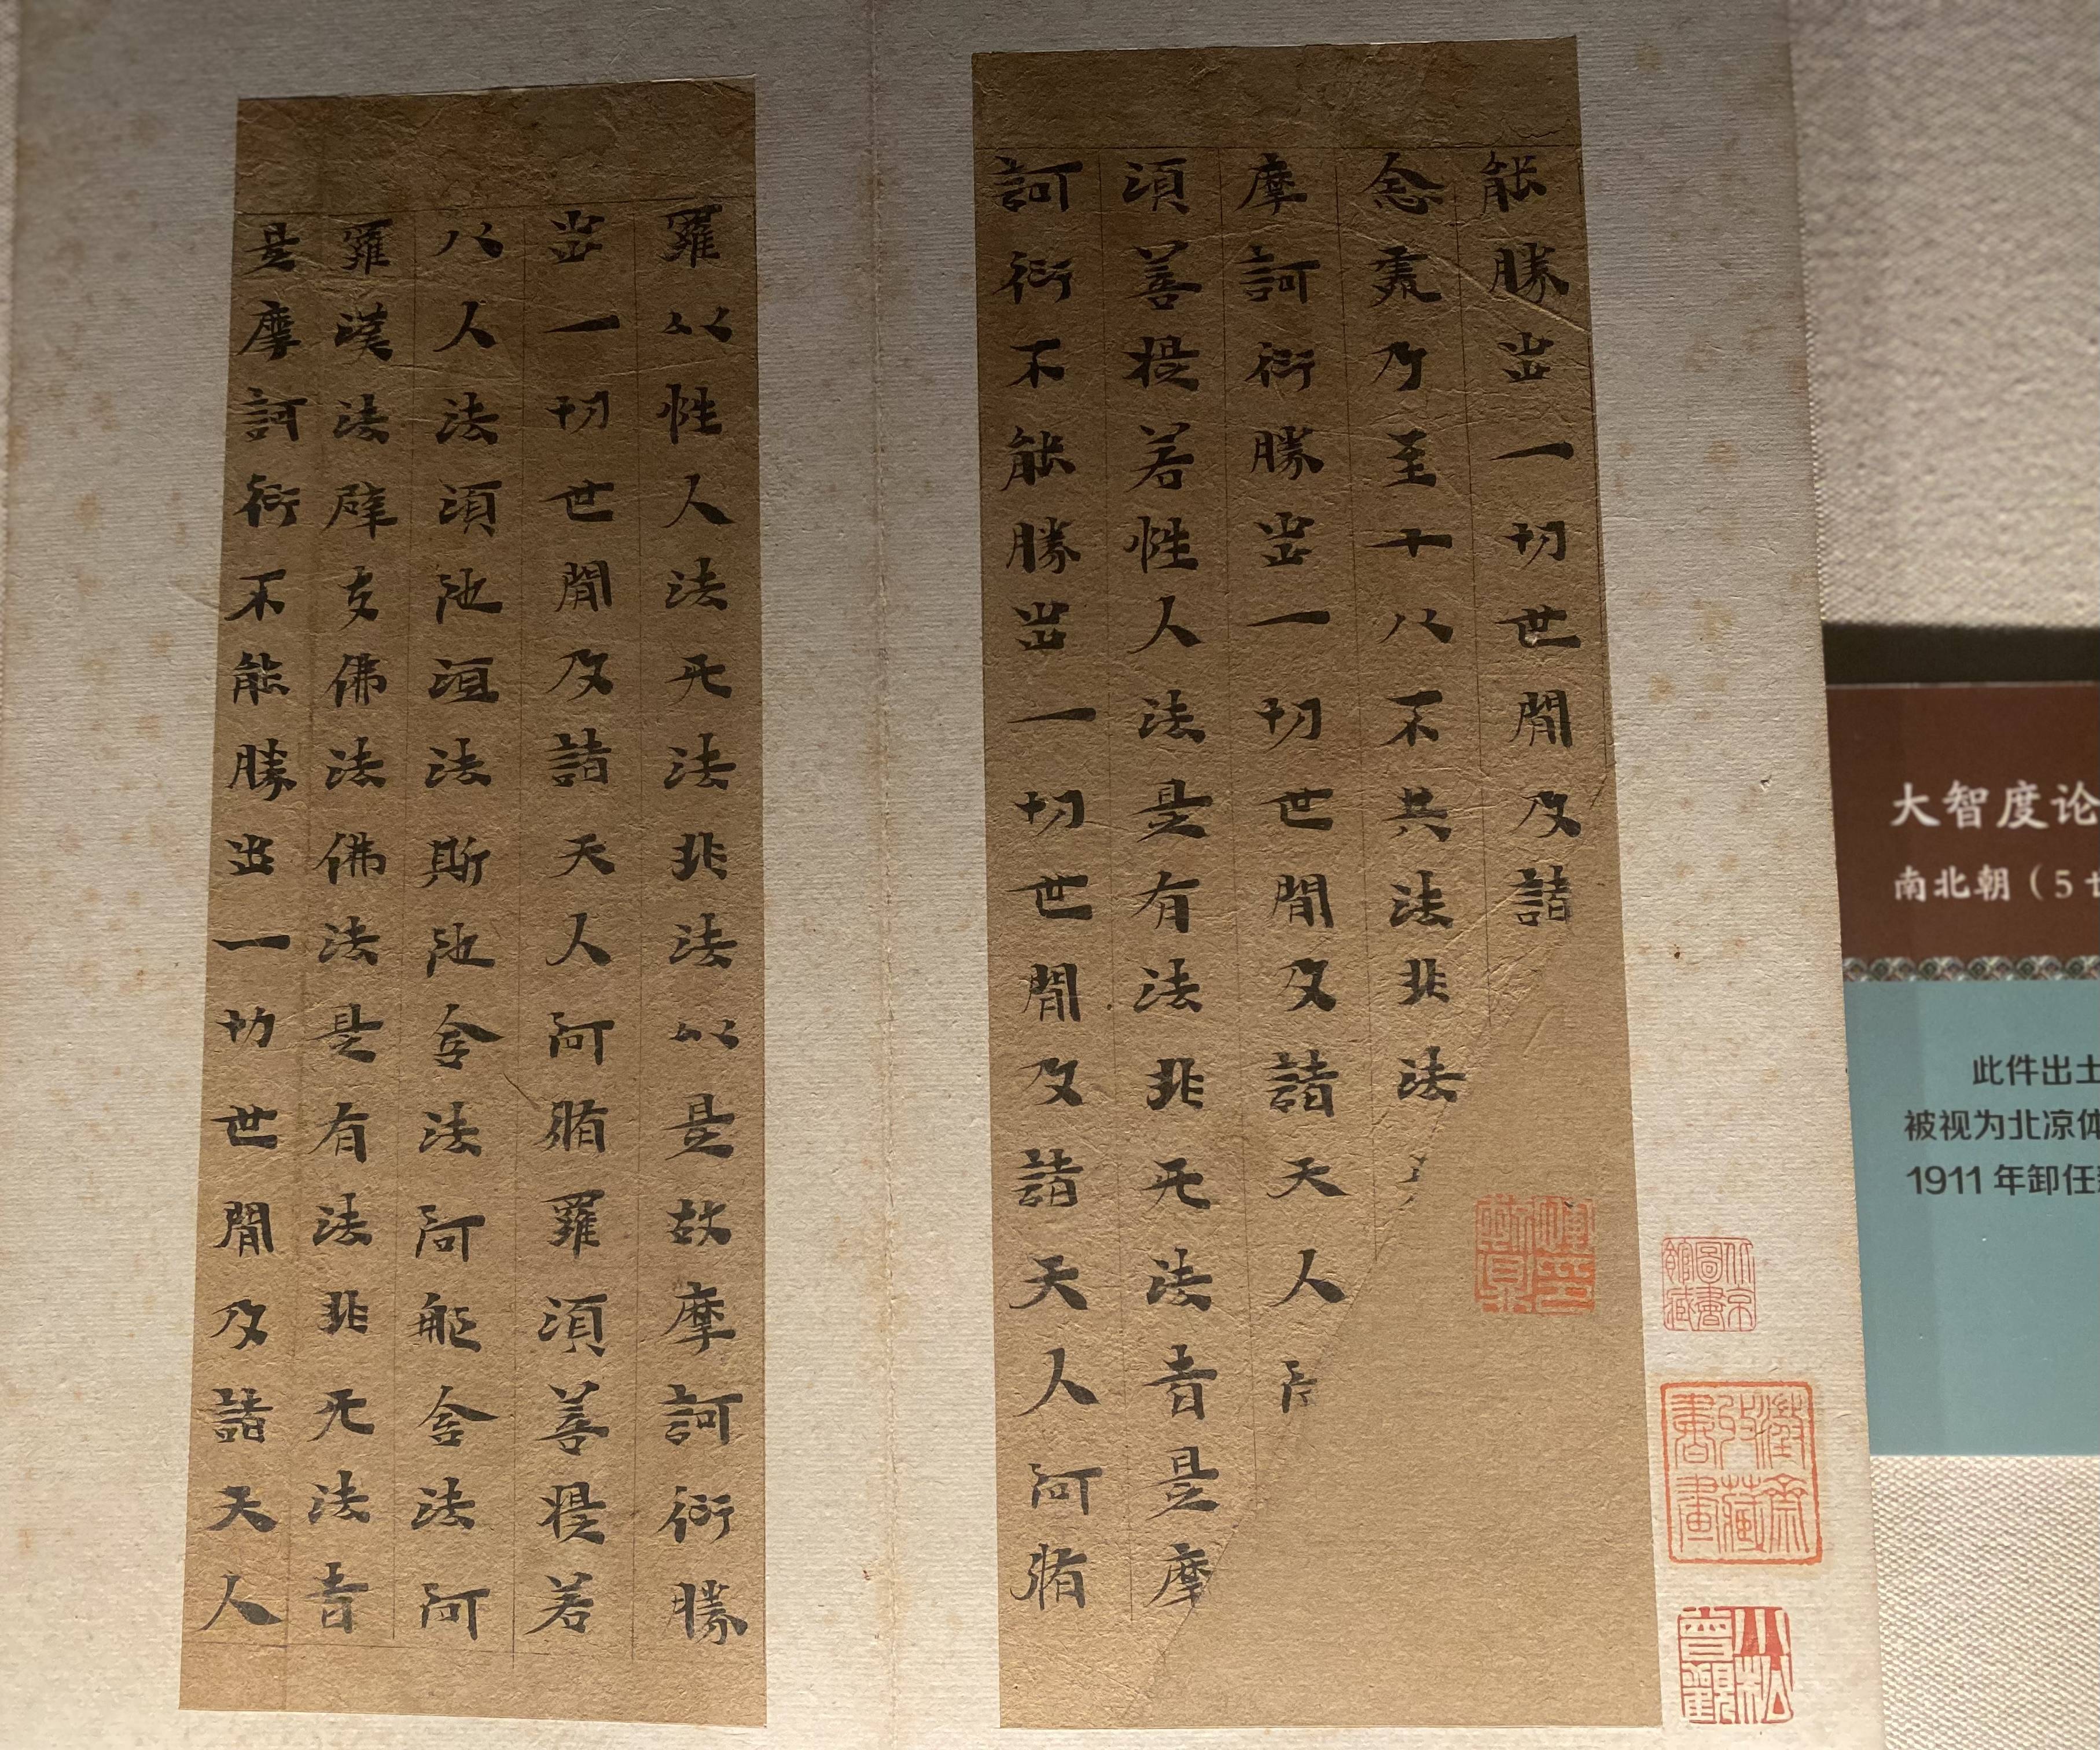 能勝出一切世間及諸
念處乃至十八不共法非法
摩訶衍勝出一切世間及諸天人
須菩提若性人法是有法非无法者是摩
訶衍不能勝出一切世間及諸天人阿脩
羅以性人法无法非法以是故摩訶衍勝
出一切世間及諸天人阿脩羅須菩提若
八人法須陀洹法斯陀含法阿那含法阿
羅漢法辟支佛法佛法是有法非无法者
是摩訶衍不能勝出一切世間及諸天人
北京圖書館藏
小松曾觀
大智度论
南北朝（5
此件出土
被视为北凉体
1911 年卸任